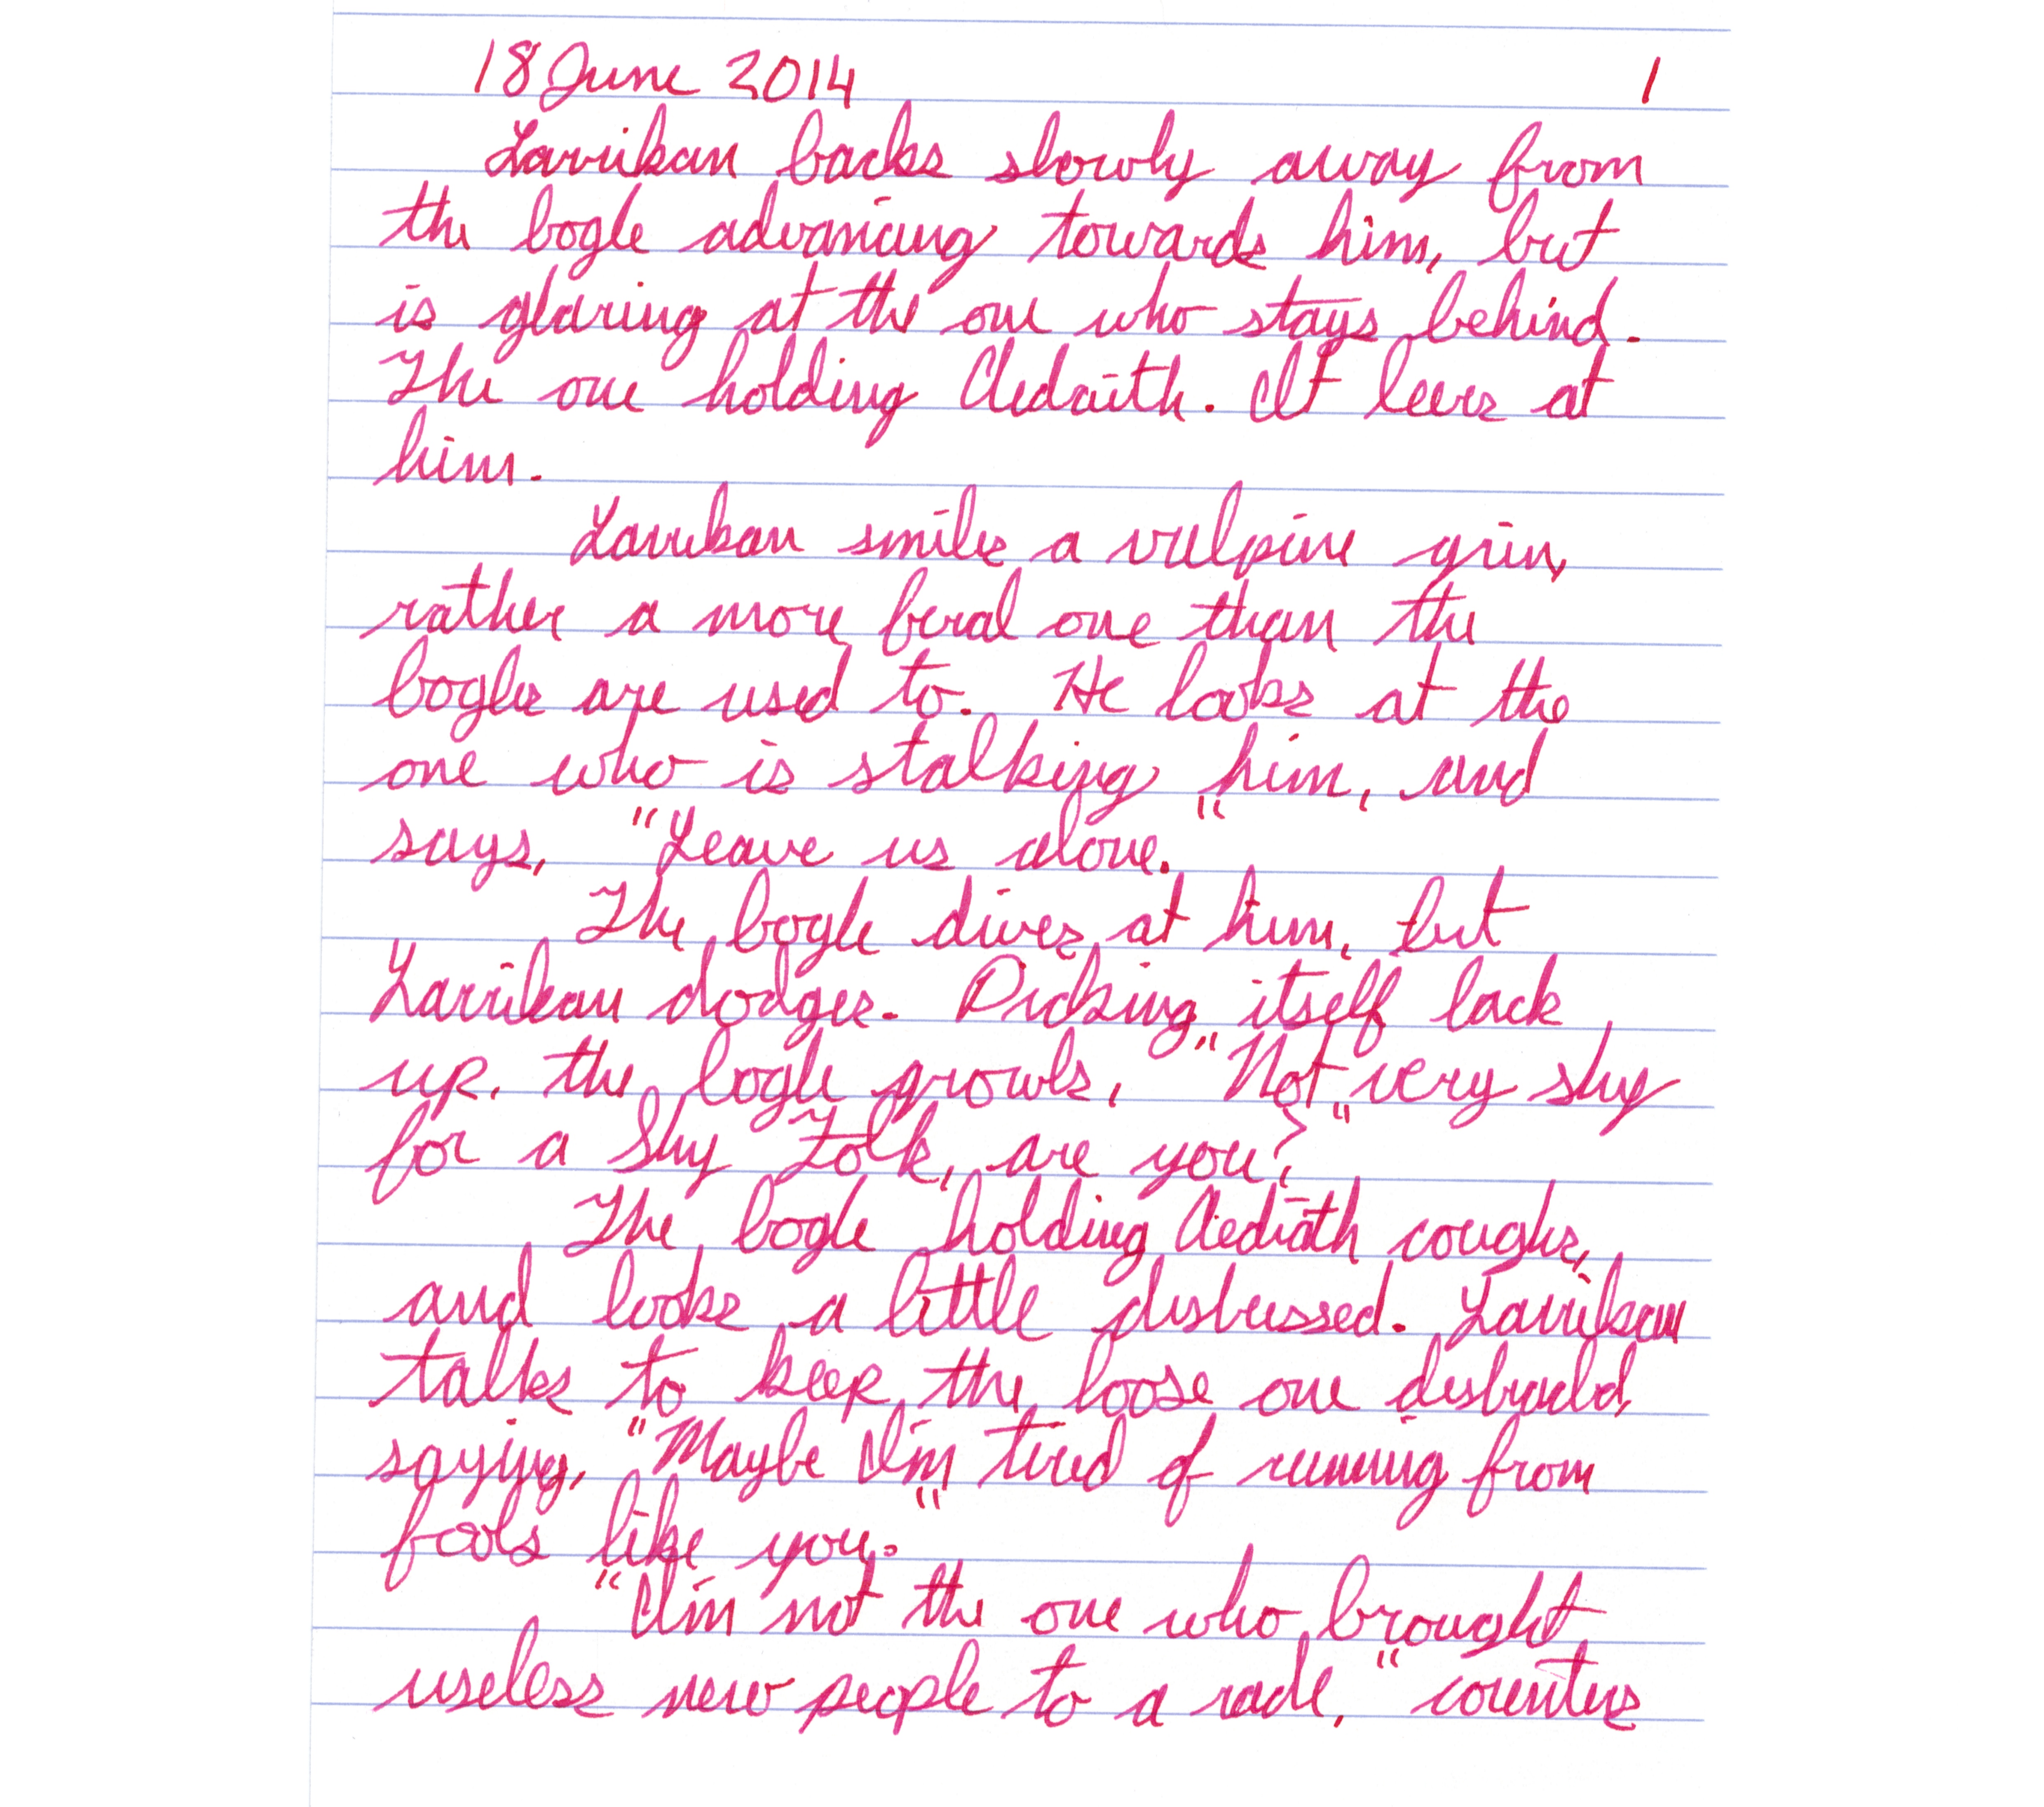 18 June 2014 1
Larrikan backs slowly away from
the bogle advancing towards him, but
is glaring at the one who stays behind.
The one holding Aedaith. It leers at
him.
Larrikan smiles a vulpine grin,
rather a more feral one than the
bogles are used to. He looks at the
one who is stalking him, and
says, "Leave us alone."
The bogle dives at him, but
Larrikan dodges. Picking itself back
up, the bogle growls, "Not very shy
for a Shy Folk, are you?"
The bogle holding Aedaith coughs,
and looks a little distressed. Larrikan
talks to keep the loose one distracted,
saying, "Maybe I'm tired of running from
fools like you."
"I'm not the one who brought
useless new people to a rade," counters